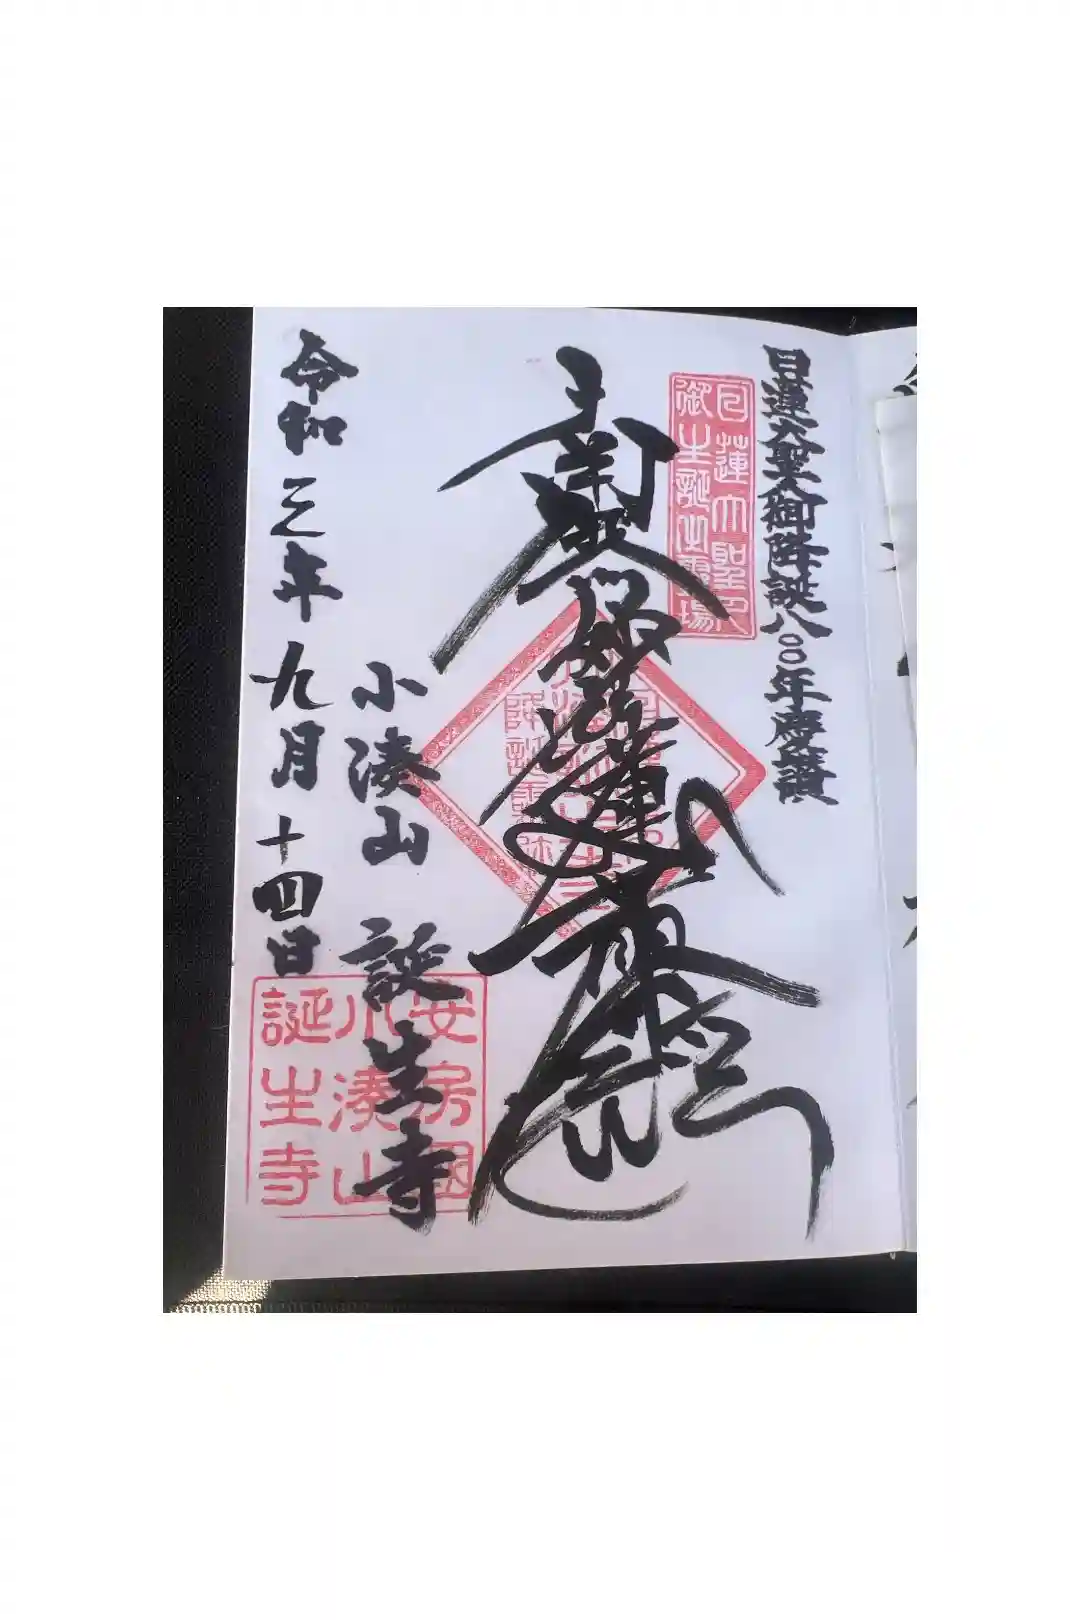 日蓮大聖人御降誕八〇〇年慶讃
日蓮大聖人
御生誕之霊場
南無妙法蓮華経
小湊山 誕生寺
令和三年九月十四日
安房国
小湊山
誕生寺